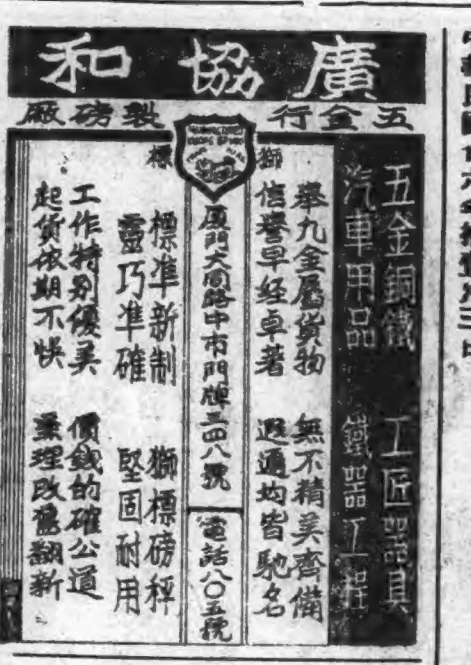 廣協和
五金行
製磅廠
獅標
五金銅鐵 工匠器具
汽車用品 鐵器工程
舉凢金屬貨物 無不精美齊備
信譽早經卓著 遐邇均皆馳名
厦門大同路中市門牌三四八號
電話八〇五號
標準新制 獅標磅秤
靈巧準確 堅固耐用
工作特别優美 價錢的確公道
起貨依期不悞 兼理改舊翻新